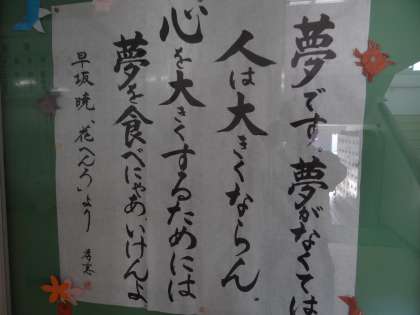 夢です。夢がなくては
人は大きくならん。
心を大きくするためには
夢を食べにゃあ、いけんよ
早坂 暁、「花へんろ」より